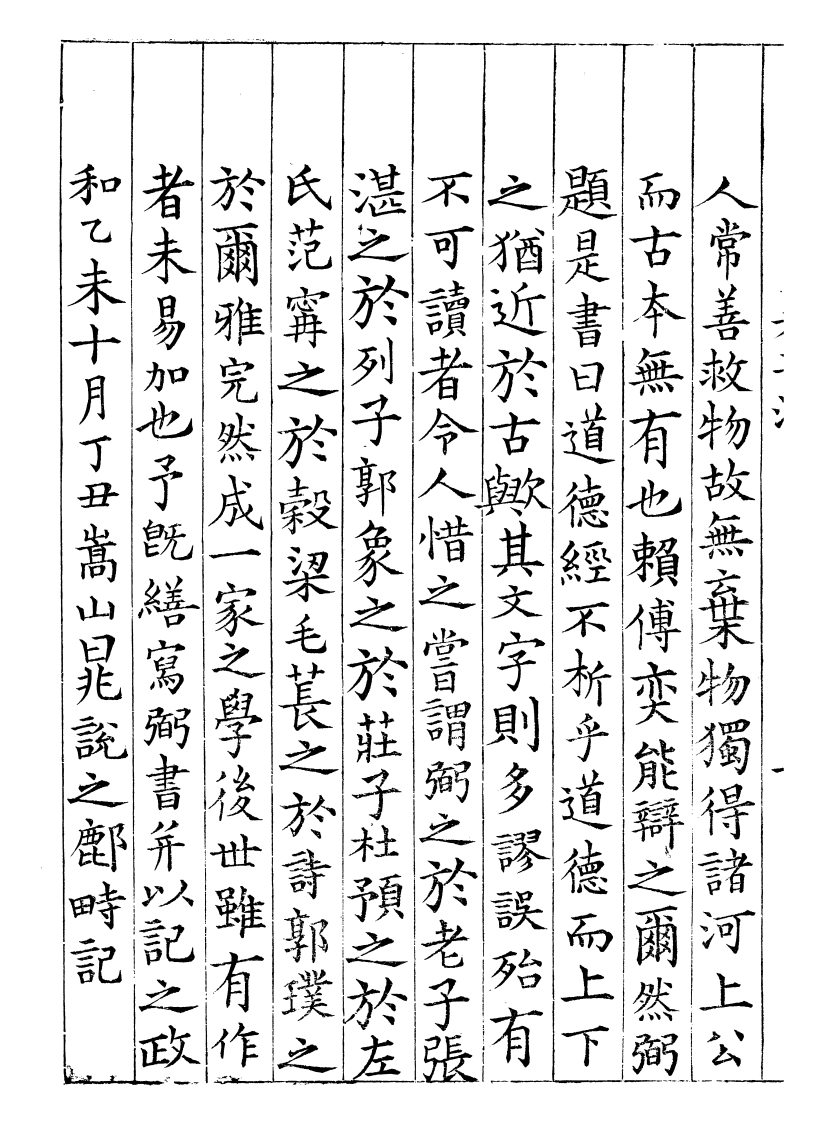 人常善救物故無棄物獨得諸河上公
而古本無有也賴傅奕能辯之爾然弼
題是書曰道德經不析乎道德而上下
之猶近於古歟其文字則多謬誤殆有
不可讀者令人惜之嘗謂弼之於老子張
湛之於列子郭象之於莊子杜預之於左
氏范甯之於穀梁毛萇之於詩郭璞之
於爾雅完然成一家之學後世雖有作
者未易加也予旣繕寫弼書并以記之政
和乙未十月丁丑嵩山晁說之鄜畤記